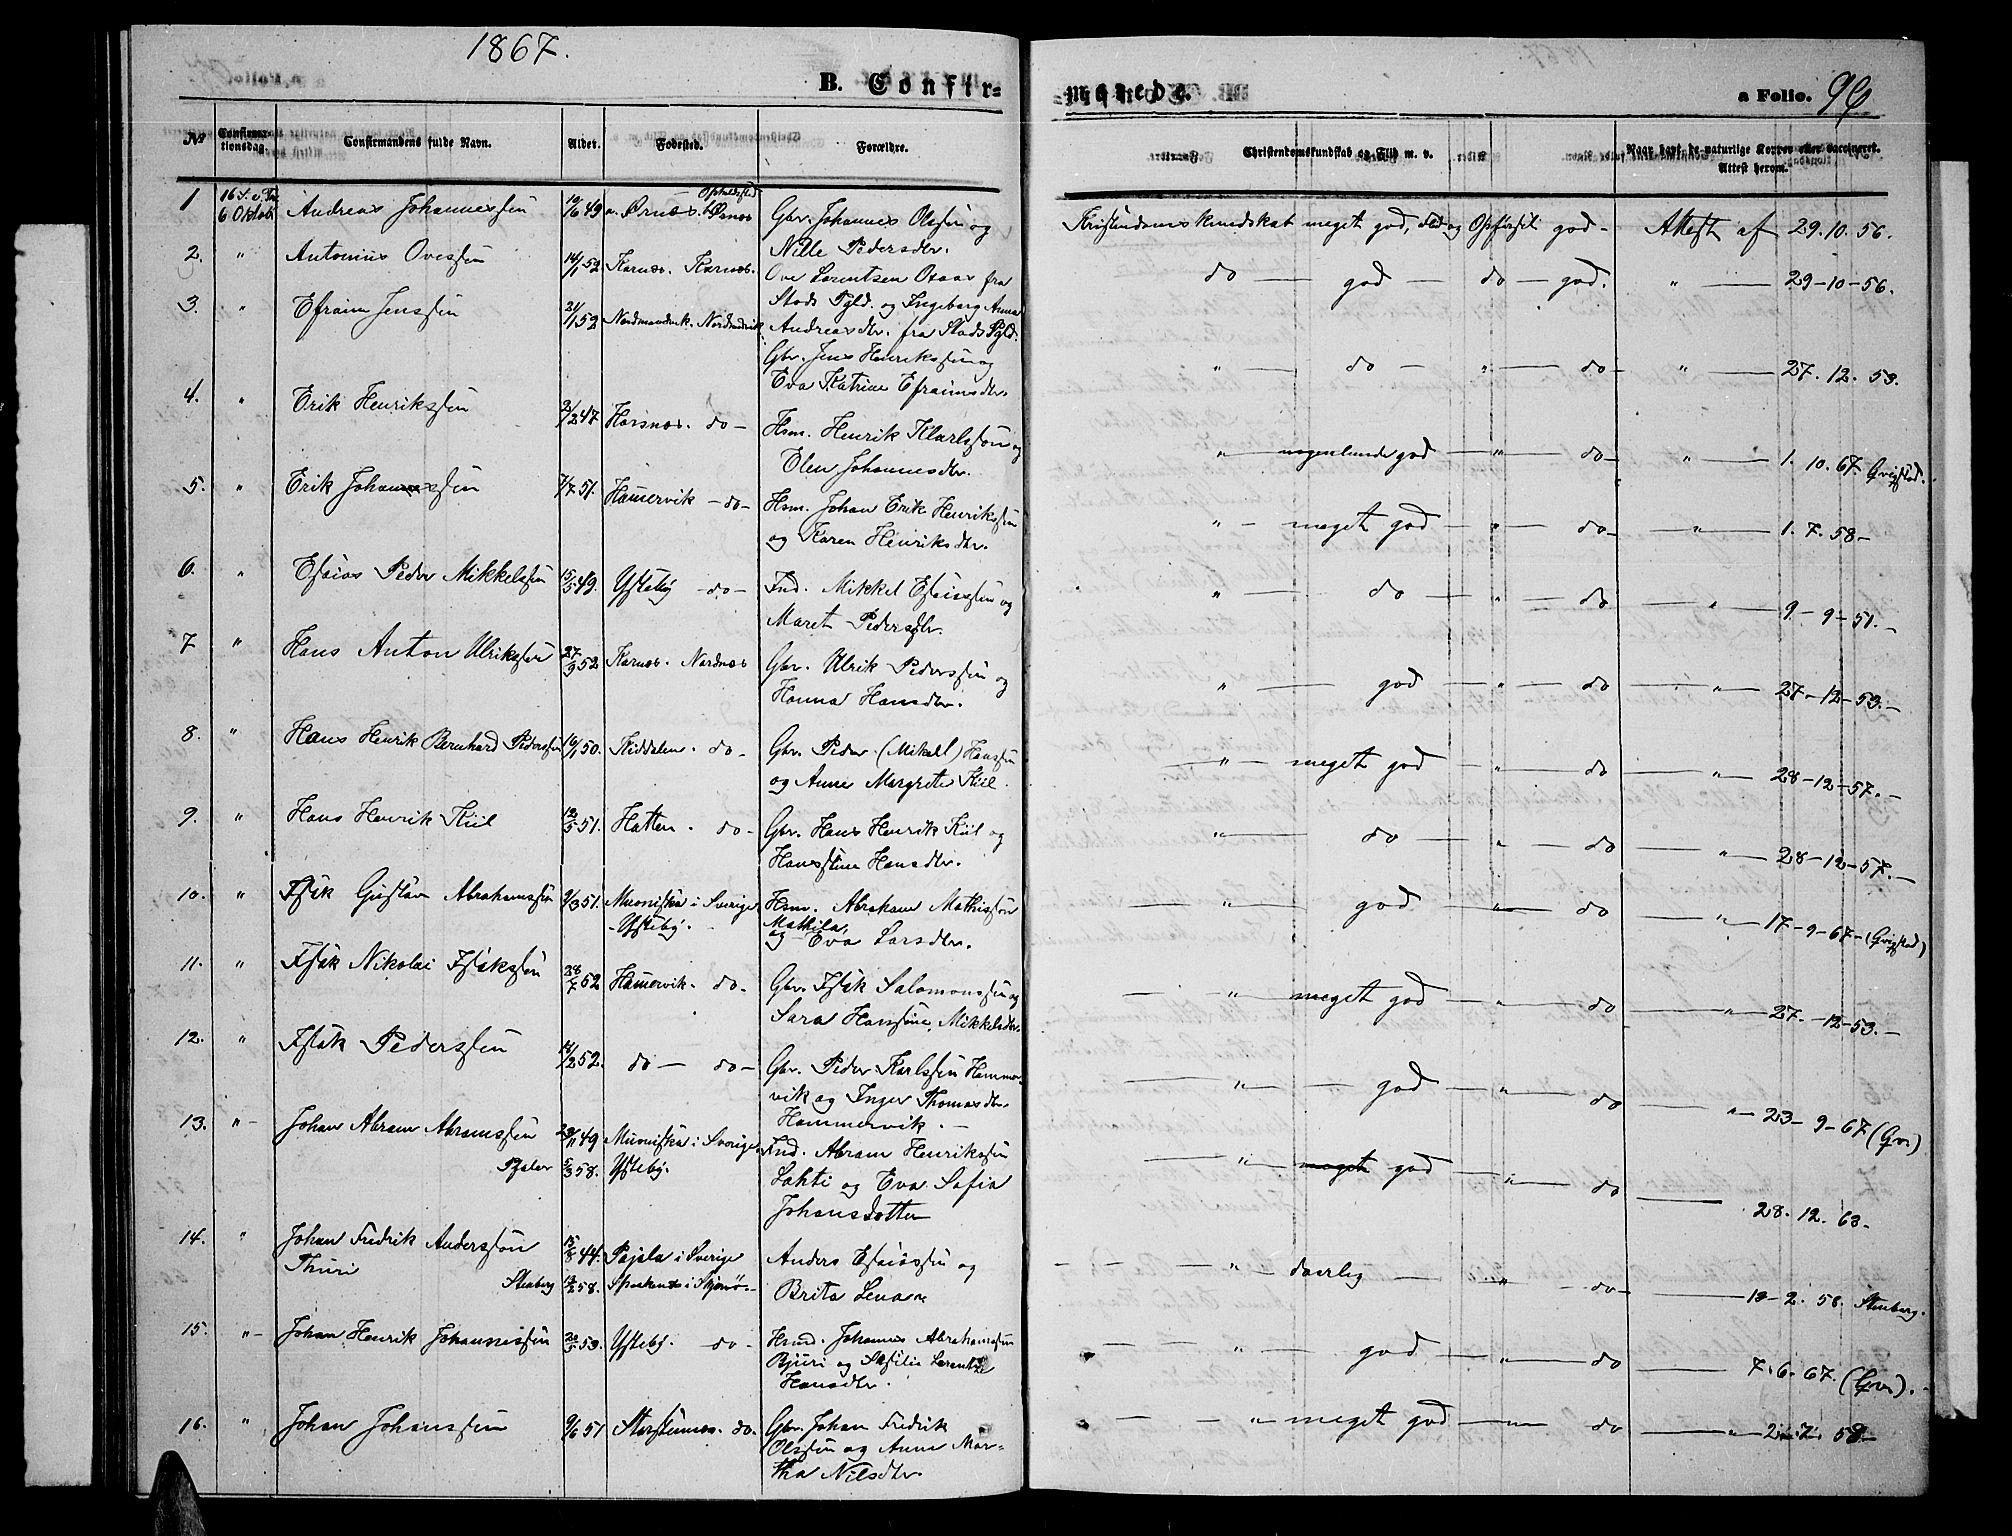 1867.
B. Confir=
merede.
a Folio. 96
No
Confirmationsdag.
Confirmandens fulde Navn.
Alder.
Fødested.
Forældre.
Christendomskundskab og Flid m. v.
Naar havt de naturlige Kopper eller vaccineret.
Attest herom.
1 16 S. e. Tr. 6 Oktob Andreas Johannessen 10/6 49 Ørnæs. Opholdssted Ørnæs Gbr. Johannes Olsen og
Nille Pedersdtr.
Kristendomskundskab meget god, Flid og Opførsel god - Attest af 29. 10. 56.
2. " Antonius Ovessen 14/1 52. Karnæs. Karnæs. Ove Lorentsen Otaar fra
Stods Pgld. og Ingeborg Anna
Andreasdtr. fra Stods Pgld.
do — god — do — god. " — 29-10-56.
3. " Efraim Jenssen 21/1 52 Nordmandvik. Nordmdvik Gbr. Jens Henrikssen og
Eva Katrine Efraimsdtr.
" — do — " — do — " — 27. 12. 53.
4. " Erik Henrikssen 2/2 47 Horsnæs. do - Hsm. Henrik Karlssen og
Elen Johannesdtr.
" — nogenlunde god — " — do — " — 1. 10. 67. Qvigstad.
5. " Erik Johanssen 7/7 51. Hamervik - do - Hsm. Johan Erik Henrikssen
og Karen Henriksdtr.
" — meget god — " — do — " — 1. 7. 58 -
6. " Esaias Peder Mikkelssen 15/5 49. Ystebÿ - do - Ind. Mikkel Esaiassen og
Maret Pedersdtr.
" — do — " — do — " — 9 - 9 - 51. -
7 " Hans Anton Ulrikssen 27/9 52. Karnæs. Nordnæs Gbr. Ulrik Pederssen og
Hanna Hansdtr.
" — god — " — do — " — 27-12-53. -
8. " Hans Henrik Bernhard Pederssen 10/1 50. Kiddalen. do - Gbr. Peder (Mikal) Hanssen
og Anne Margrete Kiil.
" — meget god — " — do — " — 28-12-57. -
9. " Hans Henrik Kiil 12/5 51. Hatten. do - Gbr. Hans Henrik Kiil og
Hanstine Hansdtr.
" — do — " — do — " — 28-12-57. -
10. " Isak Gustav Abrahamssen 9/3 51. Muoniska i Sverige
- Ystebÿ. - Hsm. Abraham Mathissen
Mathila
og Eva Larsdtr.
" — god — " — do — " — 17-9-67 - (Qvigstad)
11. " Isak Nikolai Isakssen 28/7 52 Hamervik. do - Gbr. Isak Salomonssen og
Sara Hansine Mikkelsdtr.
" — meget god — " — do — " — 27.-12-53. -
12. " Isak Pederssen 14/2 52. do — do - Gbr. Peder Karlssen Hammer-
vik og Inger Thomasdtr.
Hammervik. -
" — god — " — do — " — 23-9-67 (Qvi)
13. " Johan Abram Abramssen 29/11 49 Muoniska i Sverige Ind. Abram Henrikssen
5/3 58. Ystebÿ. Lahti og Eva Sofia
Johansdotter
" — meget god — " — do — 28. 12. 63.
14. " Johan Fredrik Anderssen 15/8 44. Pajala i Sverige Anders Esaiassen og
Thuri Stenberg 13/2 58. i Skjervø - Brita Lena
" — daarlig — " — do — 13-2. 58. Stenberg.
15. " Johan Henrik Johannessen 20/5 53. Ystebÿ. do - Hsmd. Johannes Abrahamssen
Bjuri og Lorentze
Hansdtr.
" — god — " — do — 7. 6. 67. (Qvi). -
16. " Johan Johanssen 9/6 51 Storstennæs. do. Gbr. Johan Fredrik
Olssen og Anne Mar-
tha Nilsdtr.
" — meget god — " — do — " — 2. 7. 58 -